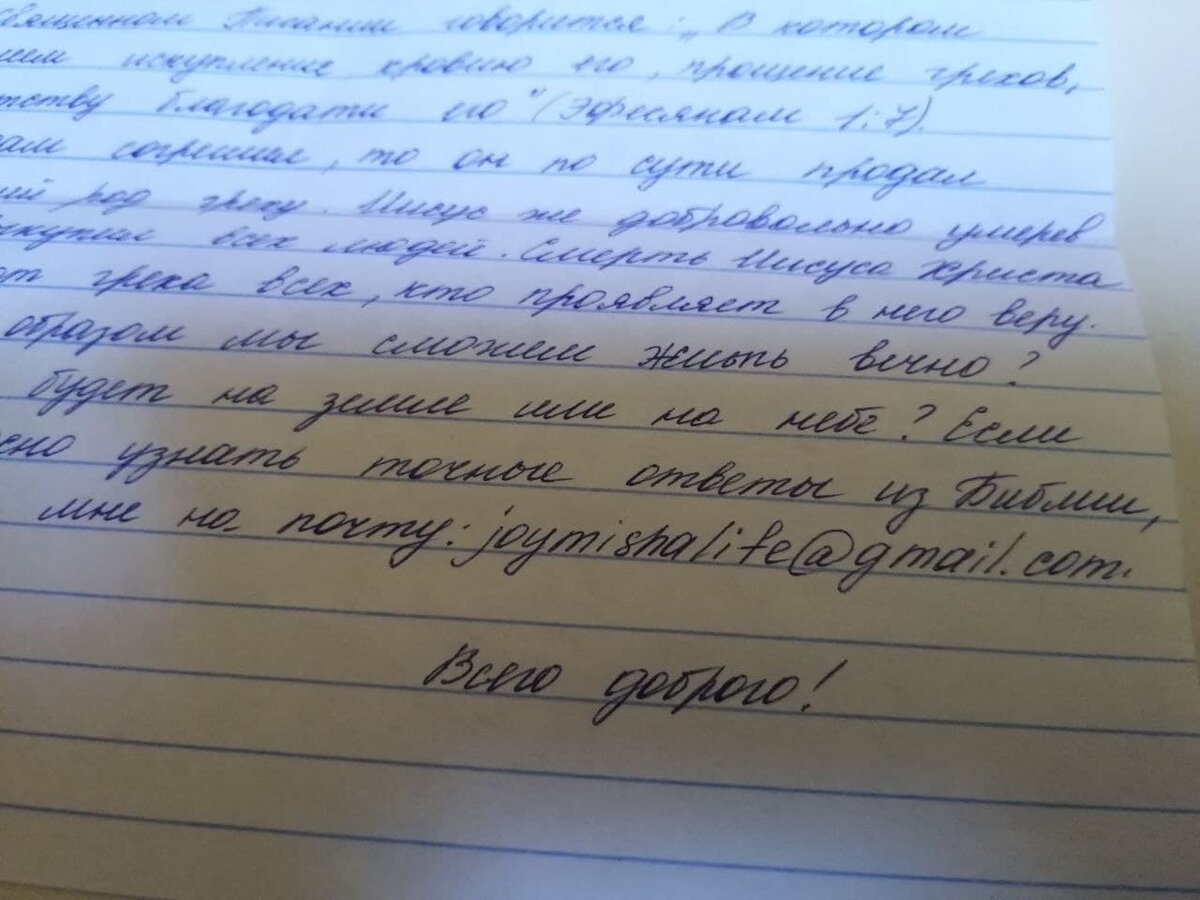 вященном Писании говорится: „В котором
ием искупление кровию его, прощение грехов,
тству благодати его" (Эфесянам 1:7).
ам согрешил, то он по сути продал
ий род греху. Иисус же добровольно умерев
ыкупил всех людей. Смерть Иисуса Христа
от греха всех, кто проявляет в него веру.
образом мы сможем жить вечно?
будет на земле или на небе? Если
сно узнать точные ответы из Библии,
мне на почту: joymishalife@gmail.com.
Всего доброго!